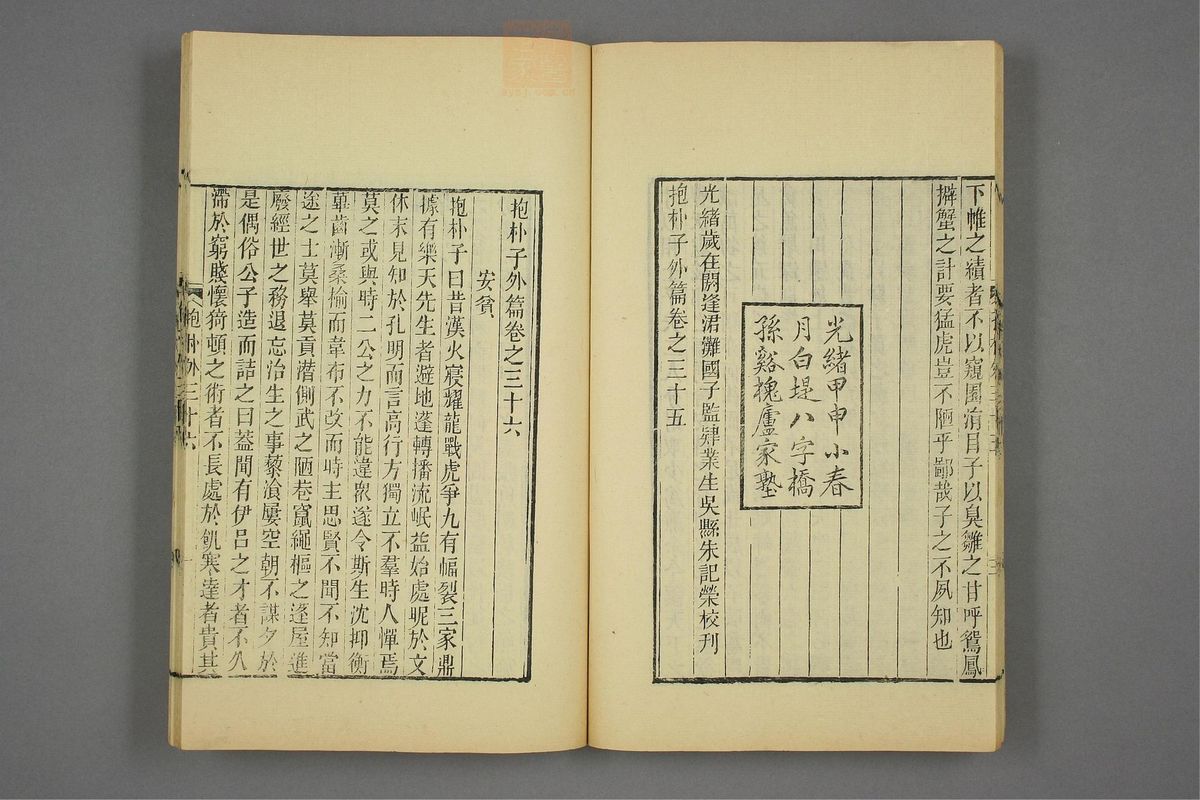 下帷之績者不以窺園涓目子以臭雛之甘呼鴛鳳
擗蟹之計要猛虎豈不陋乎鄙哉子之不夙知也
光緒甲申小春
月白堤八字橋
孫谿槐廬家塾
光緒歲在閼逢涒灘國子監肄業生吳縣朱記榮校刊
抱朴子外篇卷之三十五
抱朴子外篇卷之三十六
安貧
抱朴子曰昔漢火寢耀龍戰虎爭九有幅裂三家鼎
據有樂天先生者避地蓬轉播流岷益始處昵於文
休末見知於孔明而言高行方獨立不羣時人憚焉
莫之或與時二公之力不能違眾遂令斯生沈抑衡
蓽齒漸桑榆而韋布不改而時主思賢不聞不知當
途之士莫舉莫貢潛側武之陋巷竄繩樞之蓬屋進
廢經世之務退忘治生之事藜湌屢空朝不謀夕於
是偶俗公子造而詰之曰蓋聞有伊呂之才者不久
滯於窮賤懷猗頓之術者不長處於飢寒達者貴其
抱朴外三十六